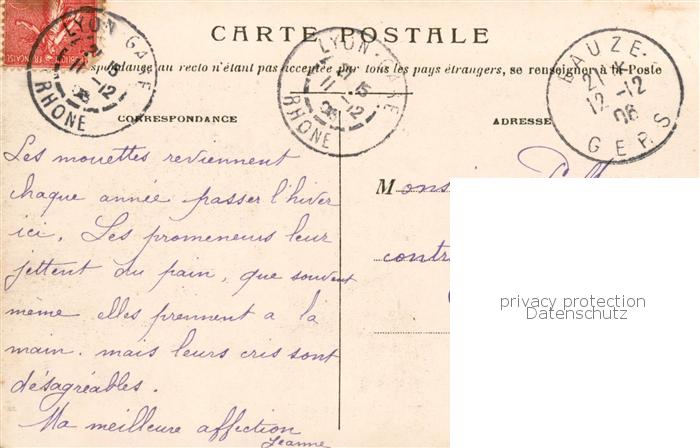 CARTE POSTALE
LYON-GARE
RHONE
11-12
LYON-GARE
RHONE
11-12
GERS
12-12
06
FRANÇAISE
Correspondance au recto n'étant pas acceptée par tous les pays étrangers, se renseigner à la Poste
CORRESPONDANCE
ADRESSE
Les mouettes reviennent
chaque année passer l'hiver
ici. Les promeneurs leur
jettent du pain, que souvent
même elles prennent à la
main. mais leurs cris sont
désagréables.
Ma meilleure affection
Jeanne
Mons
contr
privacy protection
Datenschutz